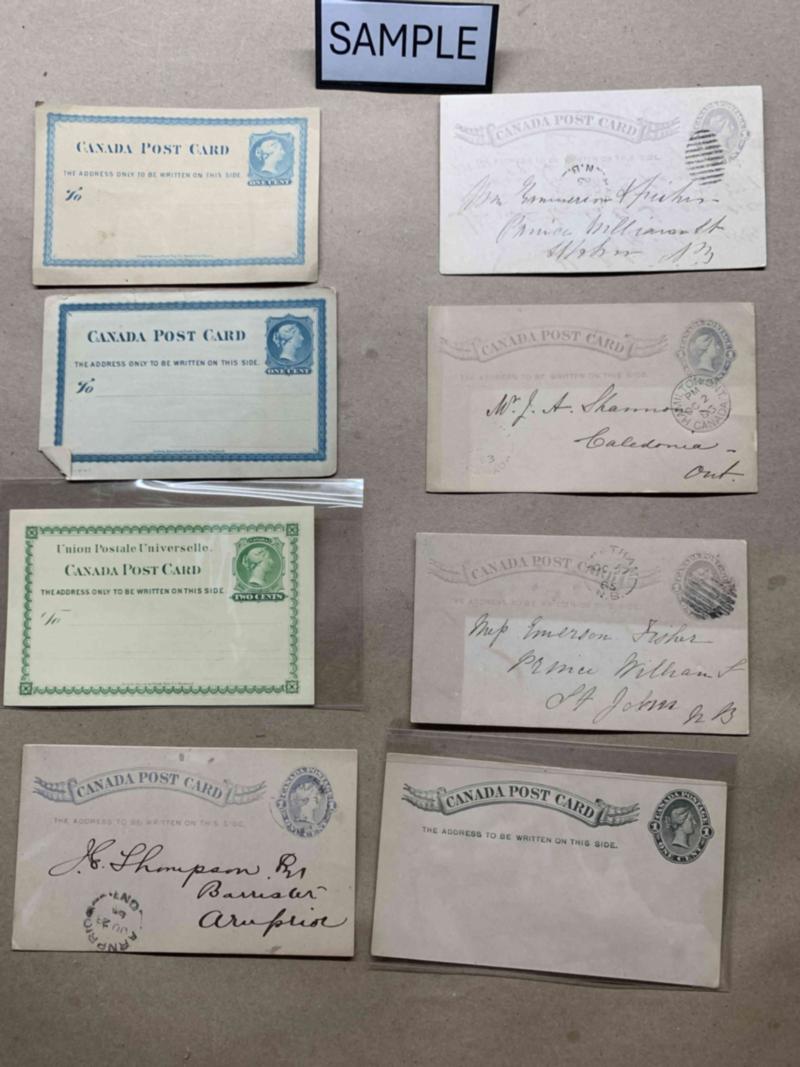 SAMPLE
CANADA POST CARD
THE ADDRESS ONLY TO BE WRITTEN ON THIS SIDE.
To
ONE CENT
CANADA POST CARD
THE ADDRESS ONLY TO BE WRITTEN ON THIS SIDE.
To
ONE CENT
Union Postale Universelle.
CANADA POST CARD
THE ADDRESS ONLY TO BE WRITTEN ON THIS SIDE.
To
TWO CENTS
CANADA POST CARD
THE ADDRESS TO BE WRITTEN ON THIS SIDE.
CANADA POSTAGE
Thompson
Barrister
Arnprior
ARNPRIOR
ONT
CANADA POST CARD
N.B.
Emmerson & Fisher
Prince William St
CANADA POST CARD
THE ADDRESS TO BE WRITTEN ON THIS SIDE.
CANADA POSTAGE
HAMILTON ONT.
PM
2
CANADA
Mr. J. A. Shannon
Caledonia
Ont.
CANADA POST CARD
N.B.
Emerson Fisher
Prince William S
St Johns
N B
CANADA POST CARD
THE ADDRESS TO BE WRITTEN ON THIS SIDE.
CANADA POSTAGE
1 1
ONE CENT